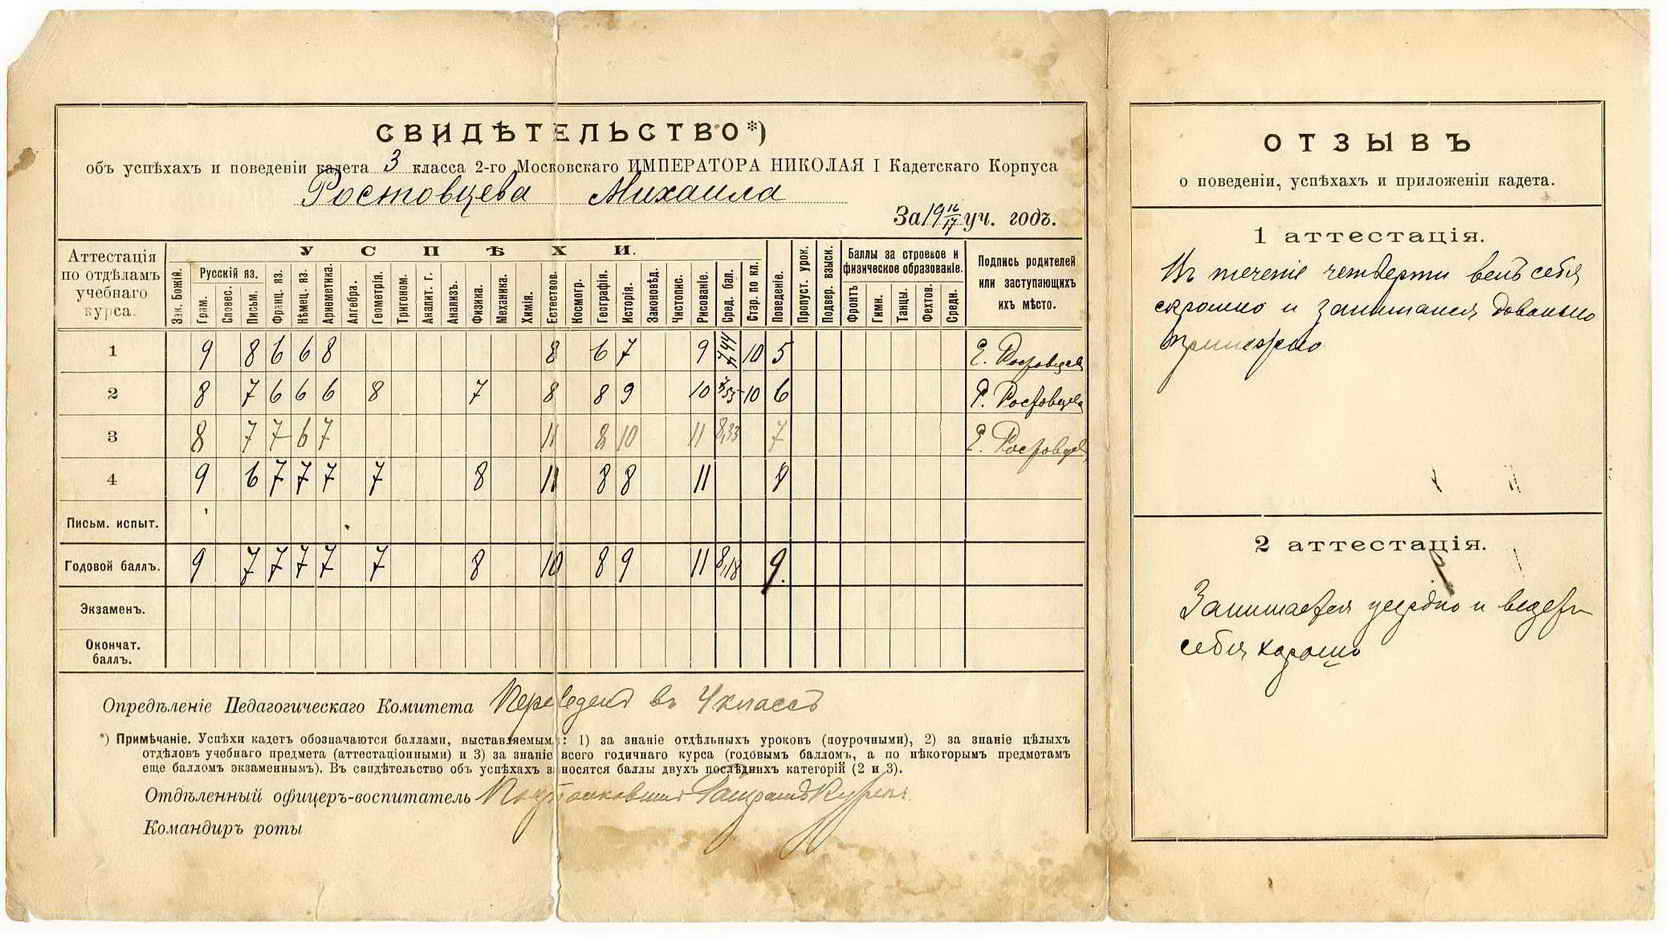 СВИДѢТЕЛЬСТВО*)
объ успѣхахъ и поведенiи кадета 3 класса 2-го Московскаго ИМПЕРАТОРА НИКОЛАЯ I Кадетскаго Корпуса
Ростовцева Михаила
За 19 16/17 уч. годъ.
Аттестацiя по отдѣламъ учебнаго курса.
УСПѢХИ.
Зак. Божiй.
Русскiй яз.
Грам. Словес. Письм. Франц. яз. Нѣмец. яз. Арифметика. Алгебра. Геометрiя. Тригоном. Аналит. г. Анализъ. Физика. Механика. Химiя. Естествов. Космогр. Географiя. Исторiя. Законовѣд. Чистопис. Рисованiе. Сред. бал. Стар. по кл. Поведенiе. Пропуст. урок. Подвер. взыск.
Баллы за строевое и физическое образованiе.
Фронтъ Гимн. Танцы. Фехтов. Средн.
Подпись родителей или заступающихъ ихъ мѣсто.
1 9 8 6 6 8 8 6 7 9 7,44 10 5 Ростовцева
2 8 7 6 6 6 8 7 8 8 9 10 7,55 10 6 Ростовцева
3 8 7 7 6 7 11 8 10 11 8,33 7 Ростовцева
4 9 6 7 7 7 7 8 11 8 8 11 8
Письм. испыт.
Годовой баллъ. 9 7 7 7 7 7 8 10 8 9 11 8,18 9.
Экзаменъ.
Окончат. баллъ.
Опредѣленiе Педагогическаго Комитета Переведенъ въ 4 классъ
*) Примѣчанiе. Успѣхи кадетъ обозначаются баллами, выставляемыми: 1) за знанiе отдѣльныхъ уроковъ (поурочными), 2) за знанiе цѣлыхъ
отдѣловъ учебнаго предмета (аттестацiонными) и 3) за знанiе всего годичнаго курса (годовымъ балломъ, а по нѣкоторымъ предметамъ
еще балломъ экзаменнымъ). Въ свидѣтельство объ успѣхахъ вносятся баллы двухъ послѣднихъ категорiй (2 и 3).
Отдѣленный офицеръ-воспитатель Подполковникъ
Командиръ роты
ОТЗЫВЪ
о поведенiи, успѣхахъ и прилежанiи кадета.
1 аттестацiя.
Въ теченiе четверти велъ себя
скромно и занимался довольно
прилежно
2 аттестацiя.
Занимается усердно и ведетъ
себя хорошо